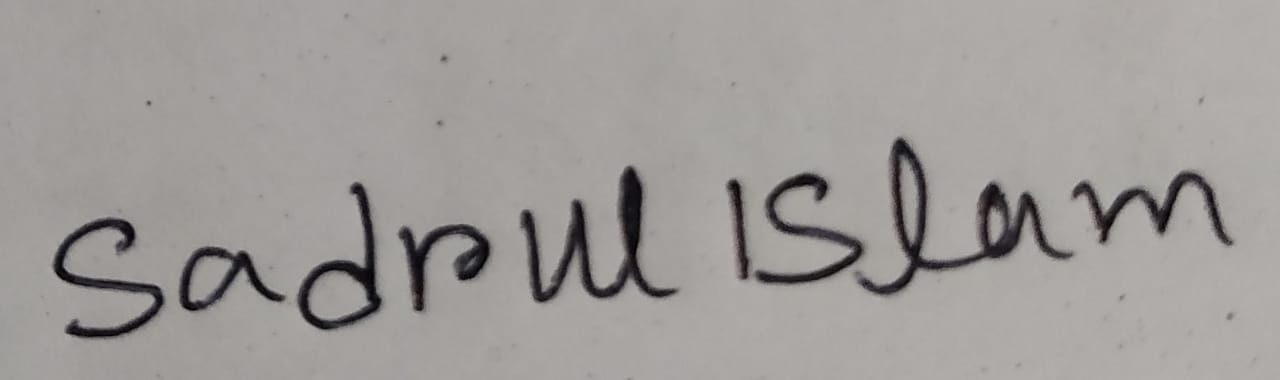 Sadrul Islam